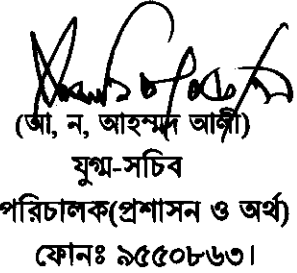 (আ, ন, আহম্মদ আলী)
যুগ্ম-সচিব
পরিচালক(প্রশাসন ও অর্থ)
ফোনঃ ৯৫৫০৮৬৩।